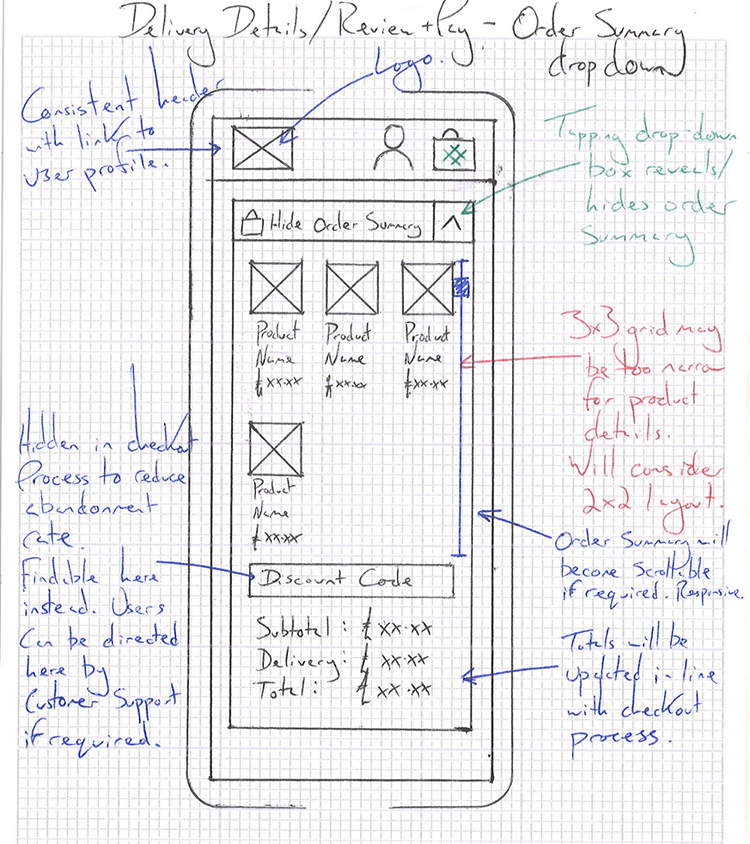 Delivery Details/Review+Pay - Order Summary
dropdown
Logo.
Consistent header
with link to
user profile.
Tapping drop-down
box reveals/
hides order
Summary
Hide Order Summary
^
Product
Name
£xx.xx
Product
Name
£xx.xx
Product
Name
£xx.xx
3x3 grid may
be too narrow
for product
details.
Will consider
2x2 layout.
Product
Name
£xx.xx
Hidden in checkout
Process to reduce
abandonment
rate.
Findable here
instead. Users
Can be directed
here by
Customer Support
if required.
Order Summary will
become Scrollable
if required. Responsive.
Discount Code
Subtotal: £xx.xx
Delivery: £xx.xx
Total: £xx.xx
Totals will be
updated in-line
with checkout
process.